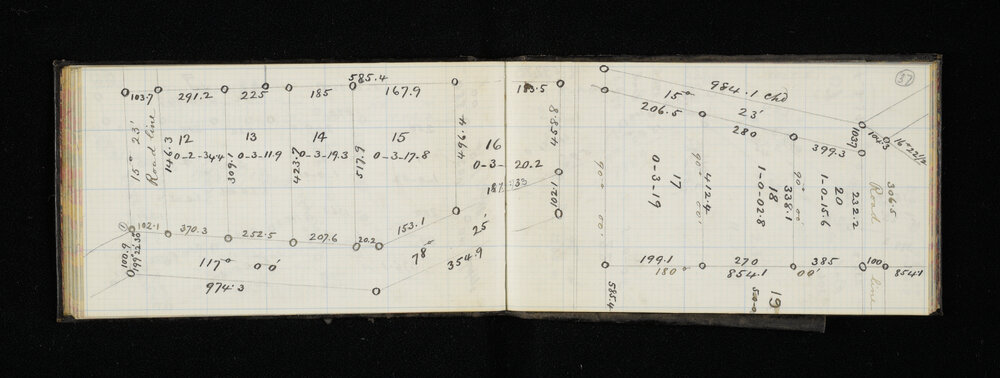 585.4
103.7 291.2 225 185 167.9
15° 23'
Road line
146.3
12 13 14 15 16
0-2-34.4 0-3-11.9 0-3-19.3 0-3-17.8 0-3-20.2
309.1
423.7
517.9
496.4
102.1 370.3 252.5 207.6 20.2 153.1
100.9
117° 00'
974.3
78° 25'
354.9
37
183.5
458.8
102.1
984.1 chd
15° 23'
206.5 280 399.3
103.7
104.3
306.5
90° 00'
0-3-19
17
90° 00'
412.4
1-0-02.8
18
338.1
90° 00'
1-0-15.6
20
232.2
Road line
199.1 270 385 100
180° 00'
854.1
854.1
585.4
19